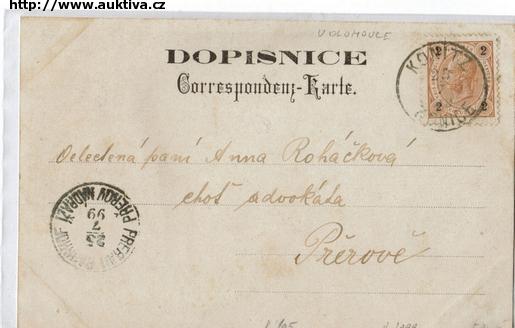 http://www.auktiva.cz
V OLOMOUCE
DOPISNICE
Correspondenz-Karte.
KONITZ
KONICE
2 2
2 2
Velectená paní Anna Roháčková
choť advokáta
Přerově
PŘEROV NÁDRAŽÍ
PRERAU BAHNHOF
25
7
99